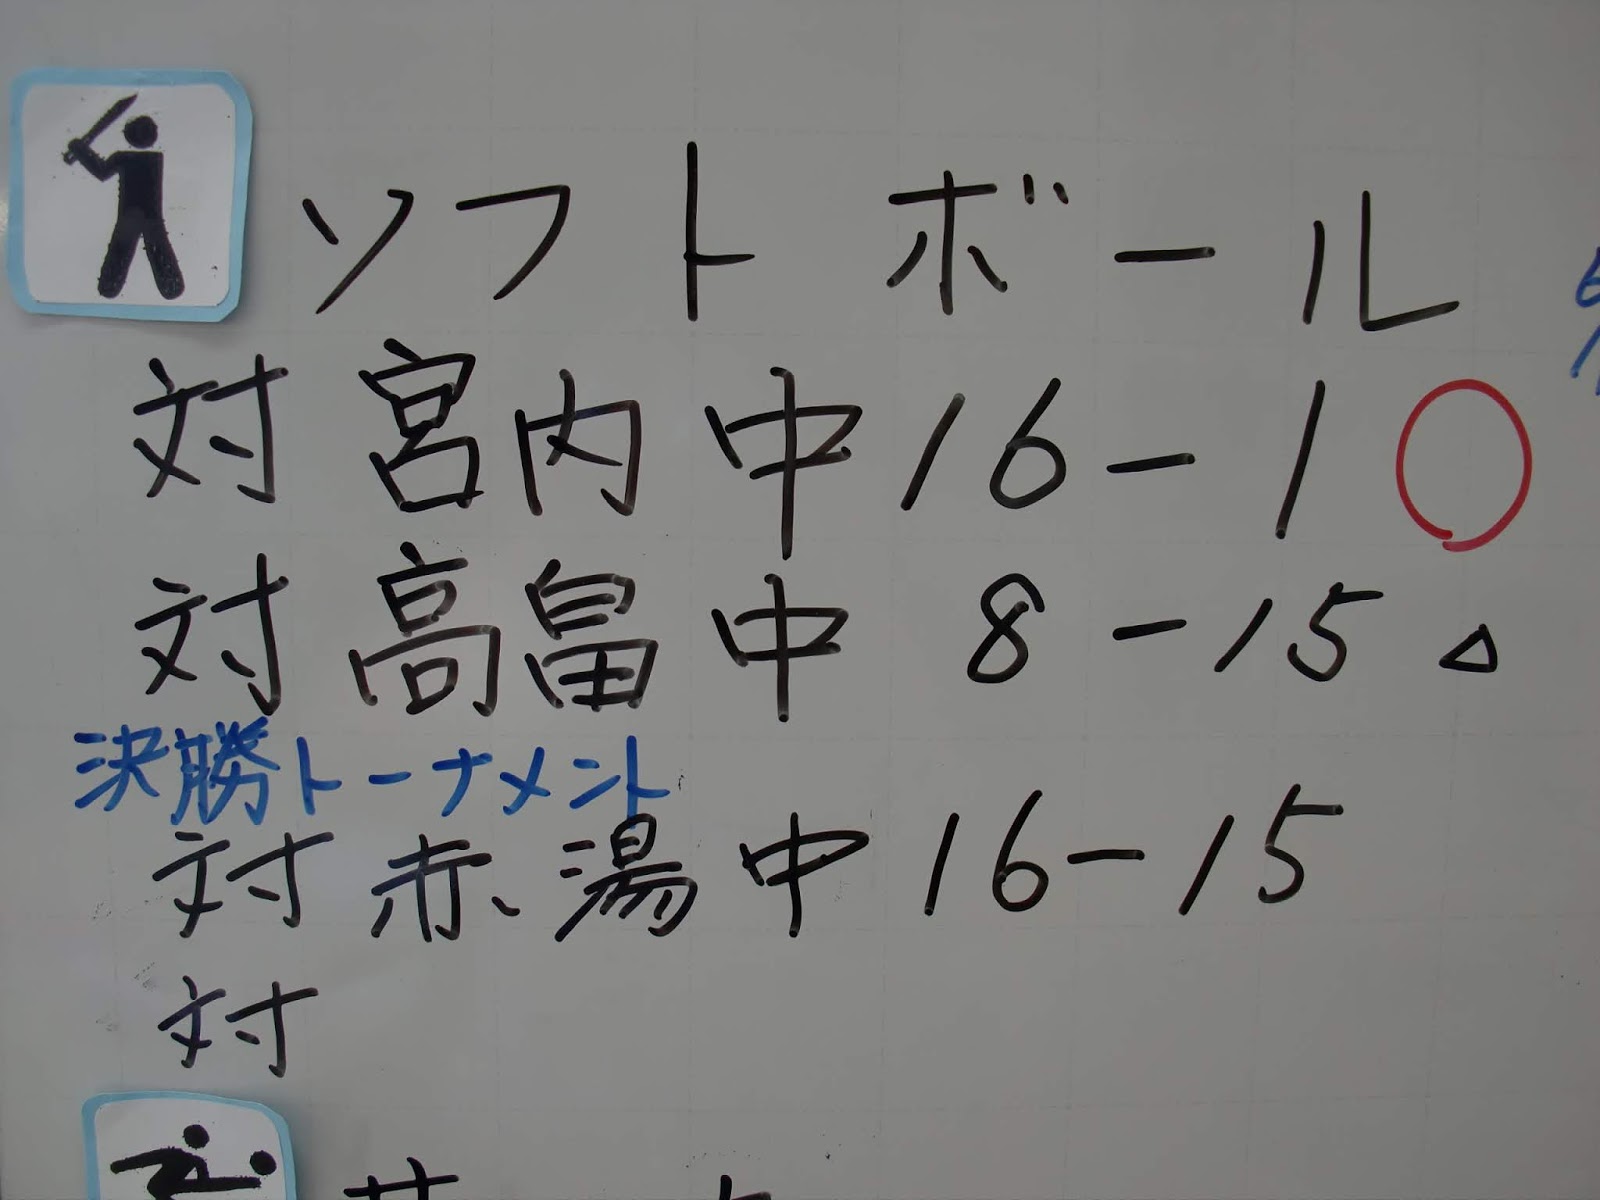 ソフトボール
対 宮内中 16-1 ○
対 高畠中 8-15 △
決勝トーナメント
対 赤湯中 16-15
対